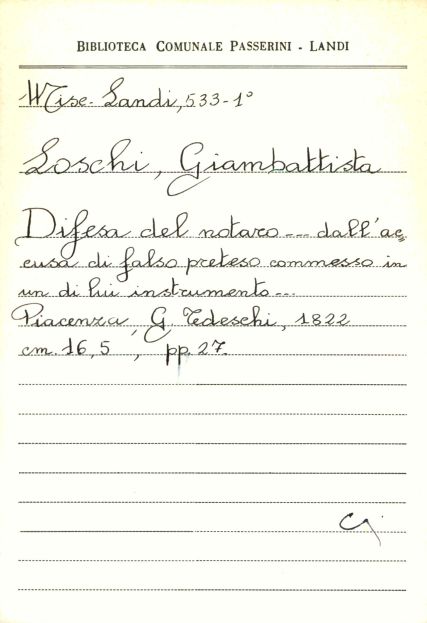 BIBLIOTECA COMUNALE PASSERINI - LANDI
Misc. Landi, 533-1°
Loschi, Giambattista
Difesa del notaro --- dall'ac=
cusa di falso preteso commesso in
un di lui instrumento ---
Piacenza, G. Tedeschi, 1822
cm. 16,5, pp. 27.